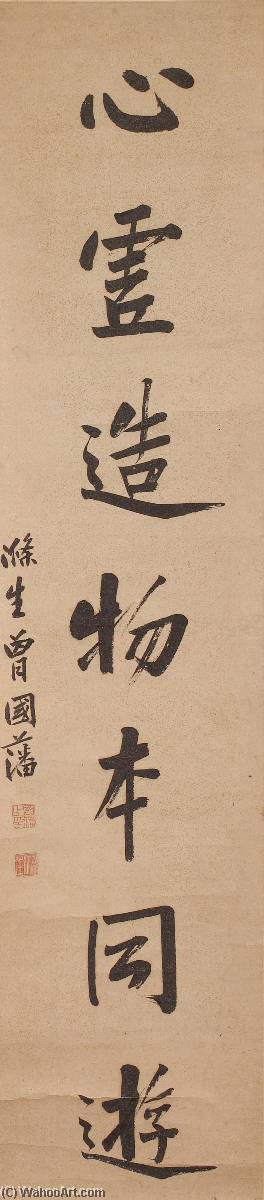 心虛造物本同遊
滌生曾國藩
(C) WahooArt.com